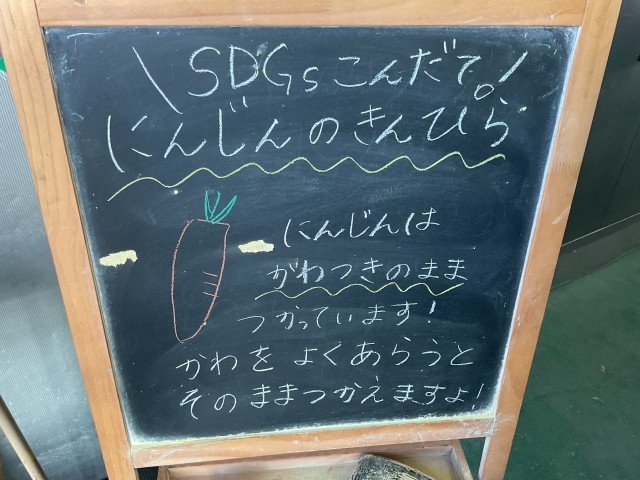 \ SDGsこんだて。/
にんじんのきんぴら
にんじんは
がわつきのまま
つかっています!
かわをよくあらうと
そのままつかえますよ!